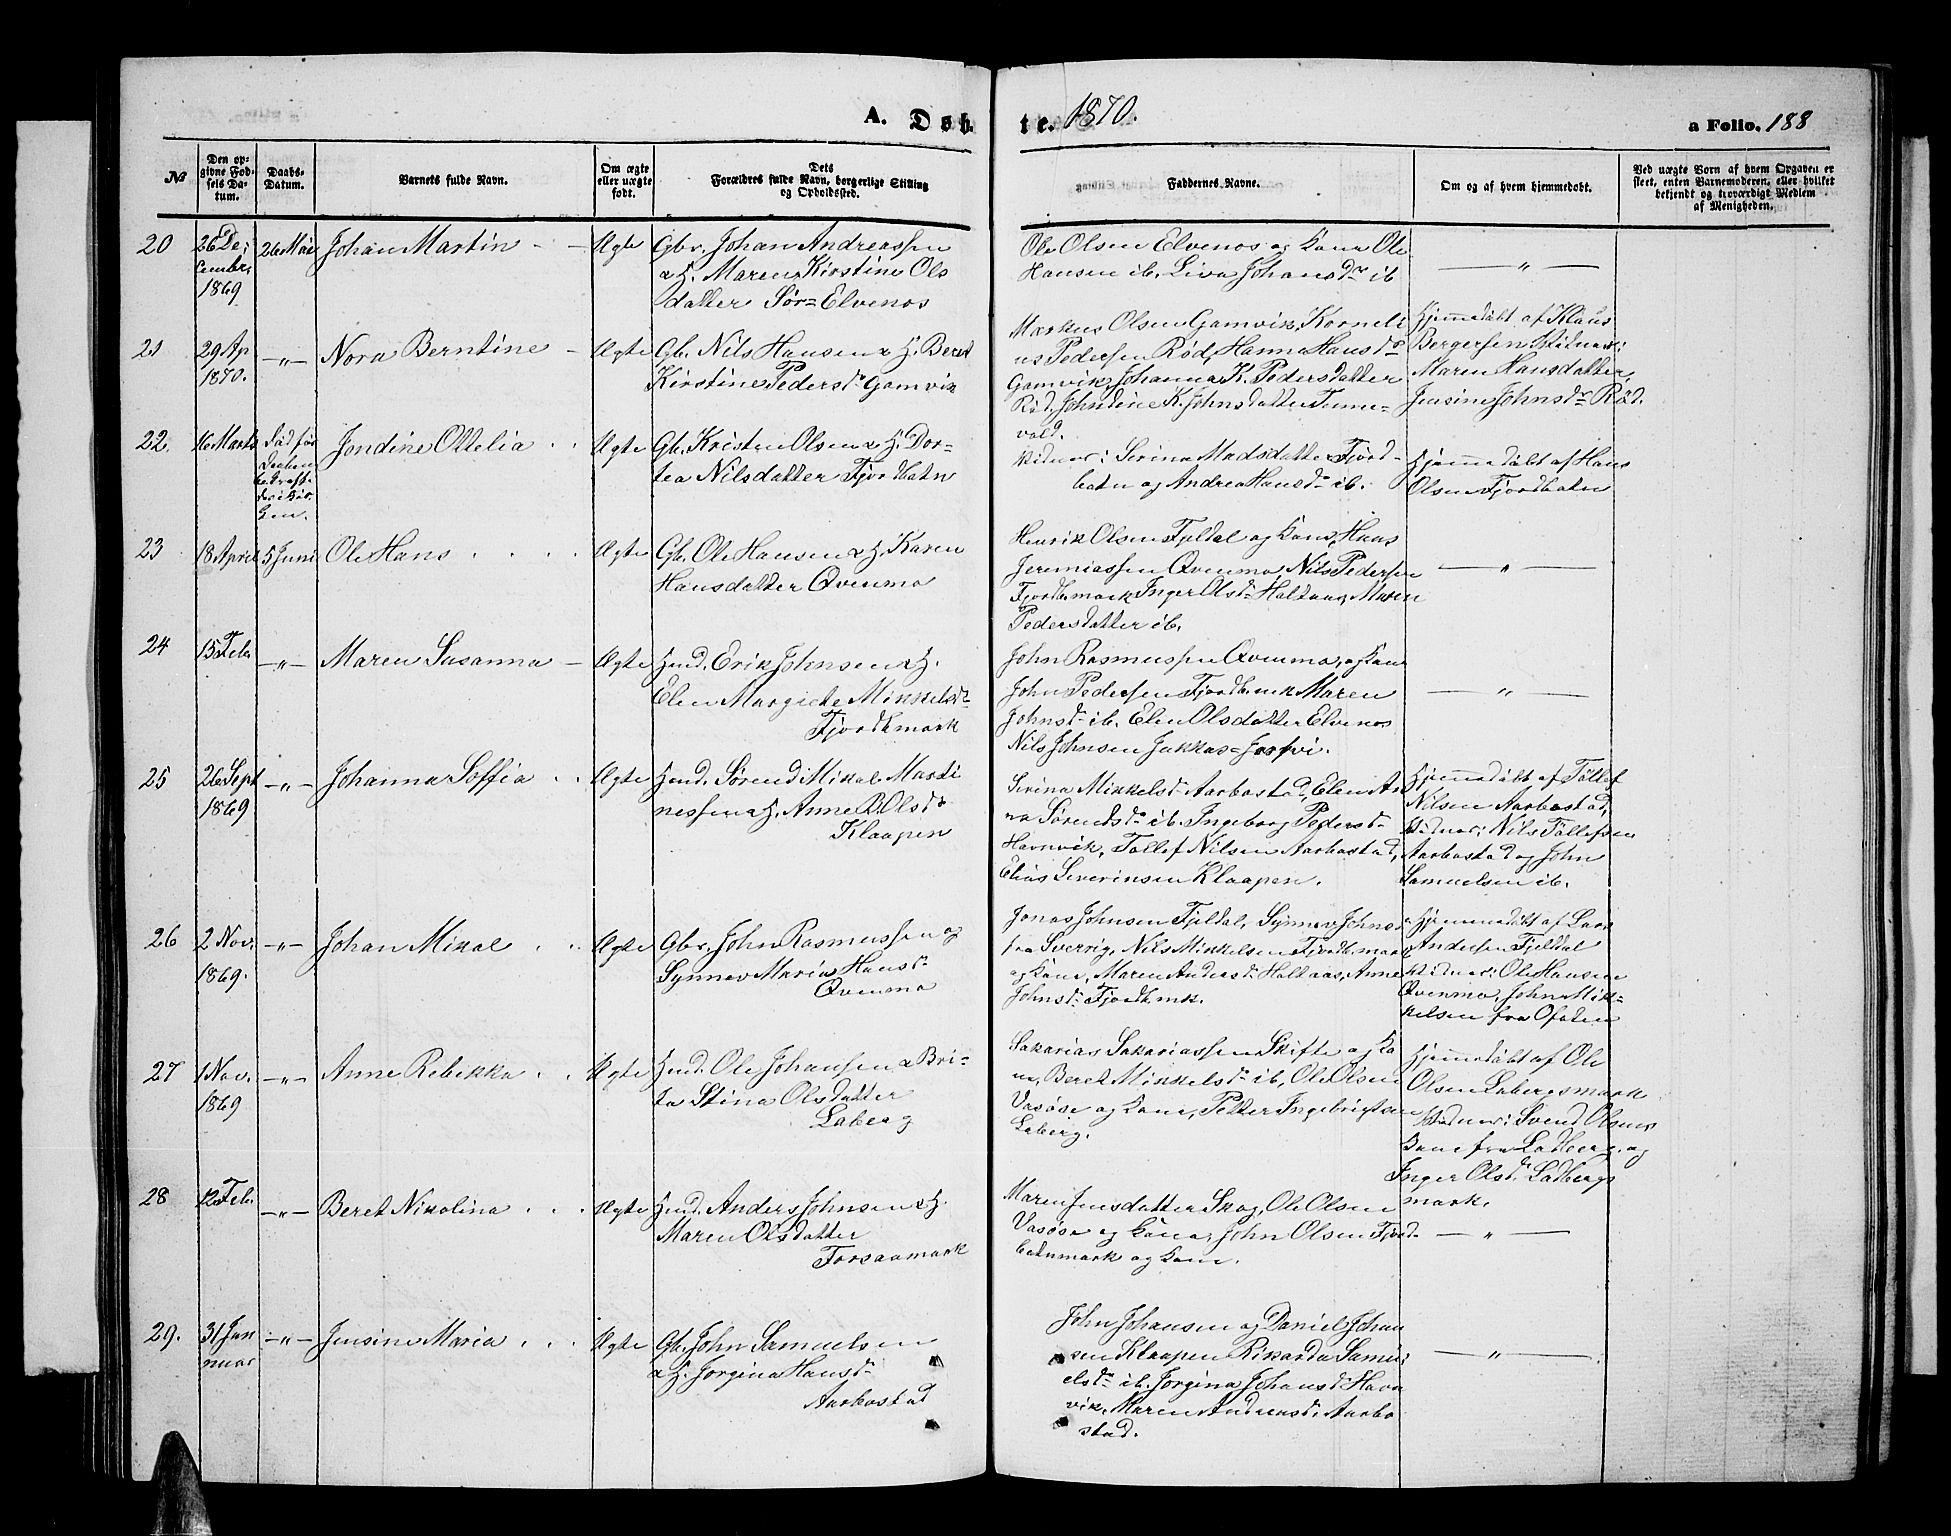 A. Døb- te. 1870.
a Folio. 188
No
Den op-
givne Fød-
sels Da-
tum.
Daabs-
Datum.
Barnets fulde Navn.
Om ægte
eller uægte
født.
Dets
Forældres fulde Navn, borgerlige Stilling
og Opholdssted.
Faddernes Navne.
Om og af hvem hjemmedøbt.
Ved uægte Børn af hvem Opgaven er
skeet, enten Barnemoderen, eller hvilket
bekjendt og troværdigt Medlem
af Menigheden.
20
26 De-
cember,
1869
26 Mai
Johan Martin
Ægte
Gbr. Johan Andreassen
& H. Maren Kirstine Ols
datter Sør=Elvenos
Ole Olsen Elvenos og Kone Ole
Hansen ib. Liva Johansdr ib
— " —
21
29 Ap
1870.
— " —
Nora Berntine
Ægte
Gb. Nils Hansen & H. Beret
Kirstine Pedersdr Gamvik
Markus Olsen Gamvik, Korneli
us Pedersen Rød, Hanna Hansdr
Gamvik, Johanna K. Pedersdatter
Rød, Johndine K. Johnsdatter Tenne-
vold.
Hjemmedøbt af Klaus
Bergersen Vidner:
Maren Hansdatter,
Jensine Johnsdr Rød.
22.
16 Marts
Død før
Daaben
bekræft-
des i Kir-
ken.
Jondine Ottelia
Ægte
Gb. Kristen Olsen & H. Dor-
tea Nilsdatter Fjordbotn
Vidner: Serina Madsdatter Fjord-
botn og Andrea Hansdr ib.
Hjemmedøbt af Hans
Olsen Fjordbotn
23
18 April
5 Juni
Ole Hans
Ægte
Gb. Ole Hansen & H. Karen
Hansdatter Qvenmo
Henrik Olsen Fjeldal og Kone, Hans
Jeremiassen Qvenmo Nils Pedersen
Fjordb.mark Inger Olsdr Holtaas, Maren
Pedersdatter ib.
— " —
24
15 Feb.
— " —
Maren Susanna
Ægte
Hmd. Erik Johnsen & H.
Elen Margrete Mikkelsdr
Fjordb.mark
John Rasmussen Qvenmo, og Kone
John Pedersen Fjordb.mk Maren
Johnsdr ib. Elen Olsdatter Elvenos
Nils Johnsen Jukkas=Jærfvi.
— " —
25
26 Sept
1869
— " —
Johanna Soffia
Ægte
Hmd. Sørend Mikal Marti
nessen & H. Anne B. Olsdr
Klaapen
Serina Mikkelsdr Aarbostad, Elen An
na Sørendsdr ib. Ingeborg Pedersdr
Havnvik, Tollef Nilsen Aarbostad,
Elias Severinsen Klaapen.
Hjemmedøbt af Tollef
Nilsen Aarbostad,
Vidner: Nils Tollefsen
Aarbostad og John
Samuelsen ib.
26
2 Nov.
1869.
— " —
Johan Mikal
Ægte
Gbr. John Rasmussen og
Synnev Maria Hansdr
Qvenmo
Jonas Johnsen Fjeldal, Synnev Johnsdr
fra Sverrig, Nils Mikkelsen Fjordb.mark
og Kone, Maren Andersdr Holtaas, Anne
Johnsdr Fjordb.mk.
Hjemmedøbt af Lars
Andersen Fjeldal
Vidner: Ole Hansen
Qvenmo, John Mik-
kelsen fra Ofoten
27
1 Nov.
1869
— " —
Anne Rebekka
Ægte
Hmd. Ole Johansen & Bri-
ta Stina Olsdatter
Laberg
Sakarias Sakariassen Skifte og Ko
ne, Beret Mikkelsdr ib, Ole Olsen
Vasøse og Kone, Petter Ingebrigtsen
Laberg.
Hjemmedøbt af Ole
Olsen Labergsmark
Vidner: Svend Olsens
Kone fra Ladberg, og
Inger Olsdr Ladbergs
mark.
28
12 Feb.
— " —
Beret Nikolina
Ægte
Hmd. Anders Johnsen & H.
Maren Olsdatter
Forsaamark
Maren Jensdatter Skog, Ole Olsen
Vasøse og Kone, John Olsen Fjord-
botnmark og Kone.
— " —
29.
31 Jan
nuar
— " —
Jensine Maria
Ægte
Gb. John Samuelsen
& H. Jorgina Hansdr
Aarbostad
John Johansen og Daniel Johan
sen Klaapen Rikarda Samu-
elsdr ib. Jorgina Johansdr Havn
vik, Maren Andreasdr Aarbo
stad.
— " —